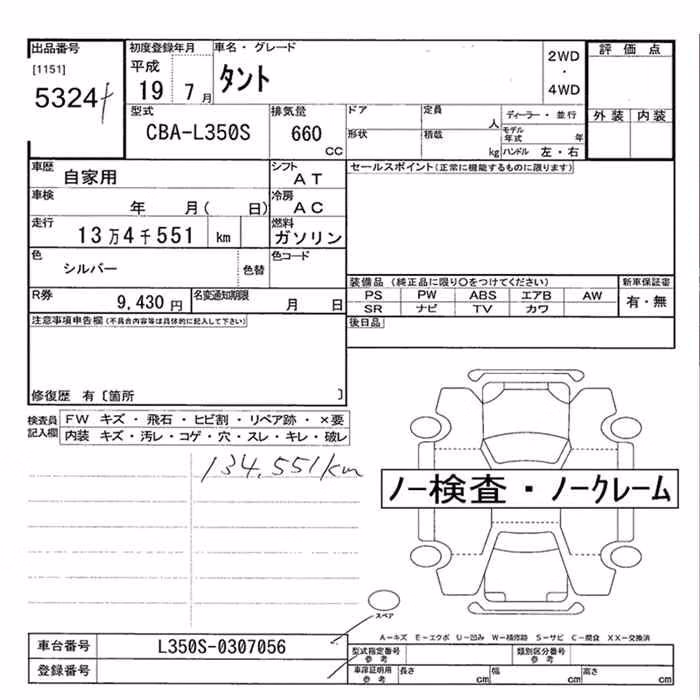 出品番号 初度登録年月 車名・グレード 評価点
[1151] 平成 タント 2WD
・
5324 19 7月 4WD
型式 排気量 ドア 定員 人 ディーラー・並行 外装 内装
CBA-L350S 660 CC 形状 積載 kg モデル年式 年
ハンドル 左・右
車歴 自家用 シフト AT セールスポイント(正常に機能するものに限ります)
車検 年 月( 日) 冷房 AC
走行 13万4千551 km 燃料 ガソリン
色 シルバー 色替 色コード
装備品 (純正品に限り○をつけてください) 新車保証書
R券 9,430円 名変通知期限 月 日 PS PW ABS エアB AW 有・無
SR ナビ TV カワ
注意事項申告欄(不具合内容等は具体的に記入して下さい) 後日品
修復歴 有〔箇所 〕
検査員記入欄 FW キズ・飛石・ヒビ割・リペア跡・×要
内装 キズ・汚レ・コゲ・穴・スレ・キレ・破レ
134,551km
ノー検査・ノークレーム
スペア
A-キズ E-エクボ U-凹み W-補修跡 S-サビ C-腐食 XX-交換済
車台番号 L350S-0307056 型式指定番号 参考 類別区分番号 参考
登録番号 車庫証明用 参考 長さ cm 幅 cm 高さ cm